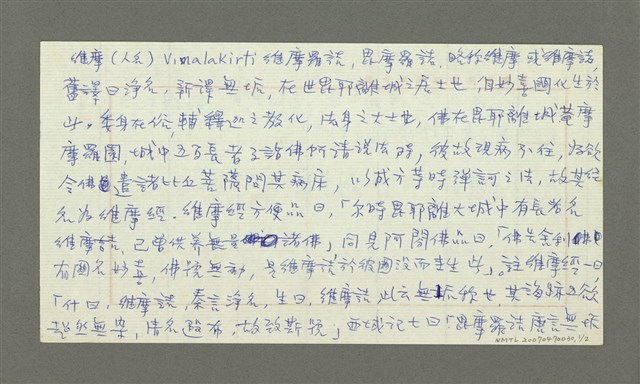 維摩(人名)Vimalakirti 維摩羅詰,毘摩羅詰,略称維摩或維摩詰
舊譯曰淨名,新譯無垢,在世毘耶離城之居士也 自妙喜國化生於
此,委身在俗,輔釋迦之教化,法身之大士也,佛在毘耶離城菴摩
摩羅園,城中五百長者子詣佛所請說法時,彼故現病不往,為欲
令佛遣諸比丘菩薩問其病床,以成方等時彈訶之法,故其經
名為維摩經.維摩經方便品曰,「尔時毘耶離大城中有長者名
維摩詰,已曾供养無量諸佛」同見阿閦佛品曰,「佛告舍利
有國名妙喜,佛號無動,是維摩詰於彼國沒而來生此」,註維摩經一曰
「什曰,維摩詰,秦言淨名,生曰,維摩詰,此云無垢称也,其迹五欲
超然無染,清名遐布,故致斯號」西域記七曰「毘摩羅詰唐言無垢
NMTL 20070470030,1/2